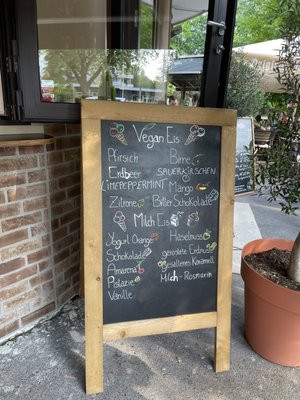 Vegan Eis
Pfirsich
Birne
Erdbeer
SAUERKIRSCHEN
LIMEPEPPERMINT
Mango
Zitrone
Bitter Schokolade
Milch Eis
Yogurt Orange
Haselnuss
Schokolade
geröstete Erdnuss
Amarena
gesalzenes Karamell
Malaga
Milch-Rosmarin
Vanille